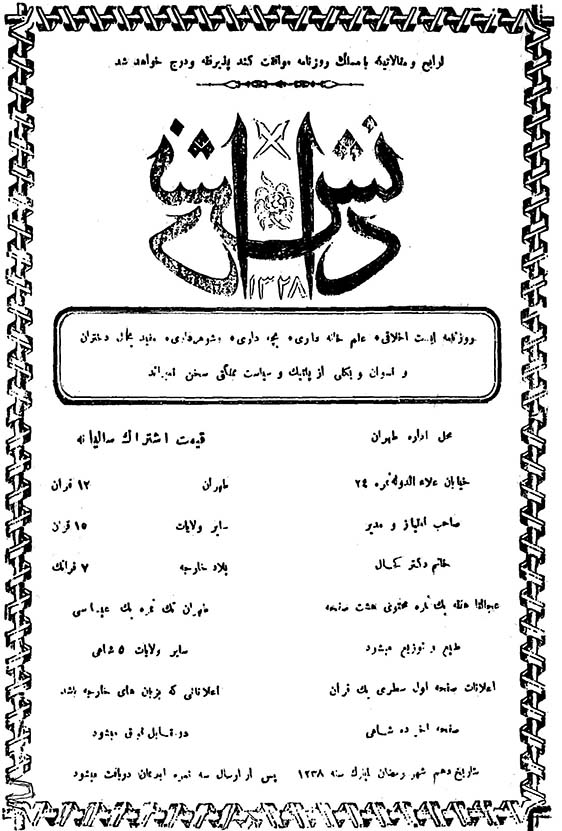 لوایح و مقالاتیکه با مسلك روزنامه موافقت کند پذیرفته و درج خواهد شد
دانش
۱۳۲۸
روزنامه ایست اخلاقی، علم خانه داری، بچه داری، شوهرداری، مفید بحال دختران
و نسوان و بکلی از پلتیك و سیاست مملکتی سخن نمیراند
محل اداره طهران
خیابان علاءالدوله نمره ۲۴
صاحب امتیاز و مدیر
خانم دکتر کحال
عجالتا هفته يك نمره محتوی هشت صفحه
طبع و توزیع میشود
اعلانات صفحه اول سطری يك قران
صفحه اخر ده شاهی
قیمت اشتراك سالیانه
طهران ۱۲ قران
سایر ولایات ۱۵ قران
بلاد خارجه ۷ فرانك
طهران تك نمره يك عباسی
سایر ولایات ۵ شاهی
اعلاناتی که بزبان های خارجه باشد
دو مقابل میشود
بتاریخ دهم شهر رمضان سنه ۱۲۳۸ پس از ارسال سه نمره دریافت میشود